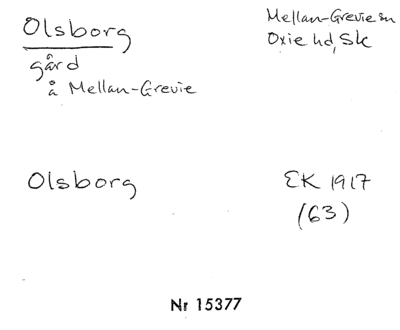 Olsborg
gård
å Mellan-Grevie
Mellan-Grevie sn
Oxie hd, Sk
Olsborg
EK 1917
(63)
Nr 15377